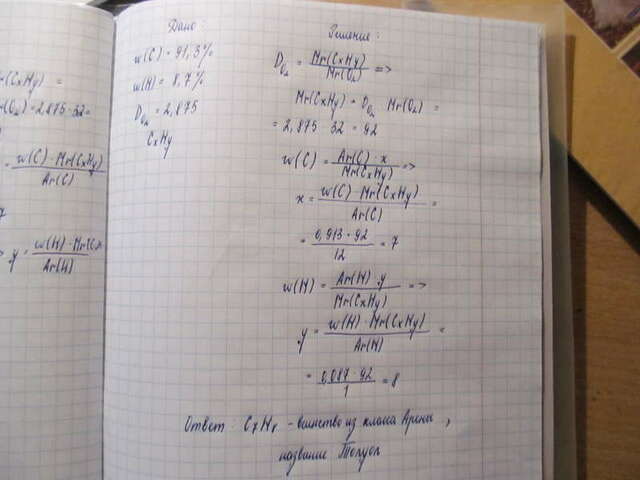 r(CxHy) =
r(O₂) = 2,875·32 =
= w(C)·Mr(CxHy)/Ar(C)
y = w(H)·Mr(Cx/Ar(H)
Дано:
w(C) = 91,3%
w(H) = 8,7%
D O₂ = 2,875
CxHy
Решение:
D O₂ = Mr(CxHy)/Mr(O₂) =>
Mr(CxHy) = D O₂ · Mr(O₂) =
= 2,875 · 32 = 92
w(C) = Ar(C) · x/Mr(CxHy) =>
x = w(C) · Mr(CxHy)/Ar(C) =
= 0,913 · 92/12 = 7
w(H) = Ar(H) · y/Mr(CxHy) =>
y = w(H) · Mr(CxHy)/Ar(H) =
= 0,087 · 92/1 = 8
Ответ: C₇H₈ - из класса Арены,
название Толуол